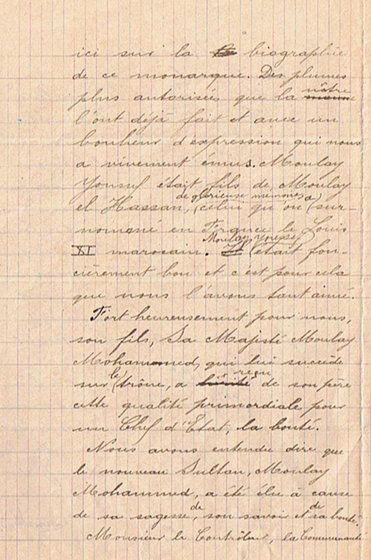 ici sur la biographie
de ce monarque. Des plumes
plus autorisées que la nôtre
l'ont déjà fait et avec un
bonheur d'expression qui nous
a vivement émus. Moulay
Youssef était fils de Moulay
el Hassan, de glorieuse mémoire, (celui qu'on a sur-
nommé en France le Louis
XI marocain. Moulay Youssef était fon-
cièrement bon et c'est pour cela
que nous l'avons tant aimé.
Fort heureusement pour nous,
son fils, Sa Majesté Moulay
Mohammed, qui lui succède
sur le trône, a reçu de son père
cette qualité primordiale pour
un Chef d'État, la bonté.
Nous avons entendu dire que
le nouveau Sultan, Moulay
Mohammed, a été élu à cause
de sa sagesse, de son savoir et de sa bonté.
Monsieur le Contrôleur, la Communauté